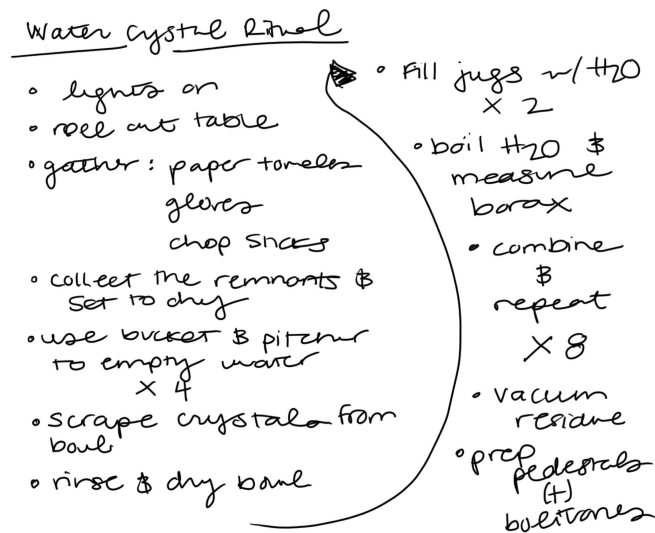 Water Cystal Ritual
• lights on
• roll out table
• gather: paper towels
gloves
chop sticks
• collect the remnants &
set to dry
• use bucket & pitcher
to empty water
× 4
• scrape crystals from
bowl
• rinse & dry bowl
• Fill jugs w/ H2O
× 2
• boil H2O &
measure
borax
• combine
&
repeat
× 8
• vacuum
residue
• prep
pedestals
(+)